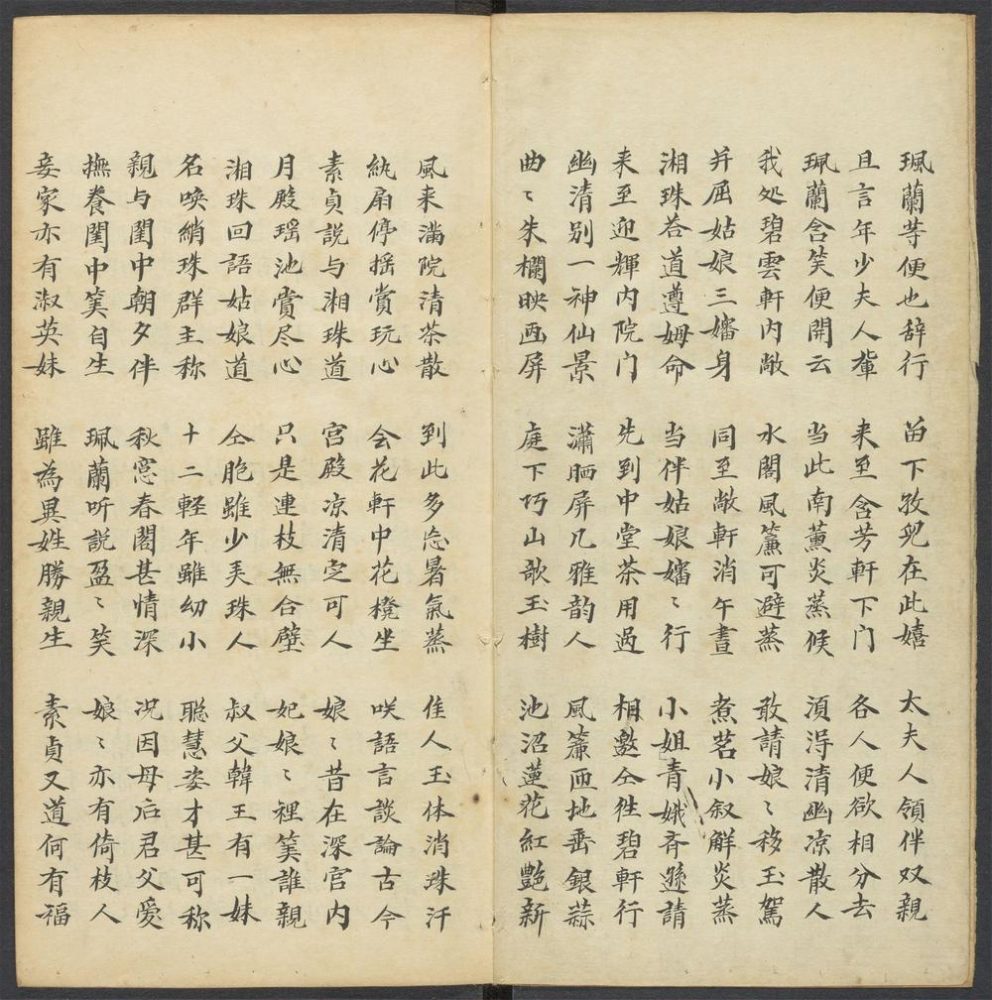 珮蘭等便也辞行 苗下孜兒在此嬉 太夫人領伴双親
且言年少夫人軰 来至含芳軒下门 各人便欲相分去
珮蘭含笑便開云 当此南薰炎蒸候 湏淂清幽凉散人
我处碧雲軒内敞 水閣風簾可避蒸 敢請娘〻移玉駕
并屈姑娘三嬸身 同至敞軒消午晝 煮茗小叙解炎蒸
湘珠荅道遵姆命 当伴姑娘嬸〻行 小姐青娥齐遜請
来至迎輝内院门 先到中堂茶用過 相邀仝徃碧軒行
幽清别一神仙景 瀟晒屏几雅韵人 風簾匝地垂銀蒜
曲〻朱欄映画屏 庭下巧山歌玉樹 池沼蓮花紅艷新
風来滿院清茶散 到此多忘暑氣蒸 佳人玉体消珠汗
紈扇停揺賞玩心 会花軒中花櫈坐 咲語言談論古今
素貞説与湘珠道 宮殿凉清定可人 娘〻昔在深宫内
月殿瑶池賞尽心 只是連枝無合璧 妃娘〻裡筭誰親
湘珠回語姑娘道 仝胞雖少羙珠人 叔父韓王有一妹
名唤綃珠群主称 十二輕年雖幼小 聪慧姿才甚可称
親与閨中朝夕伴 秋窓春閣甚情深 况因母后君父愛
撫養閨中筭自生 珮蘭听説盈〻笑 娘〻亦有倚枝人
妾家亦有淑英妹 雖為異姓勝親生 素貞又道何有福